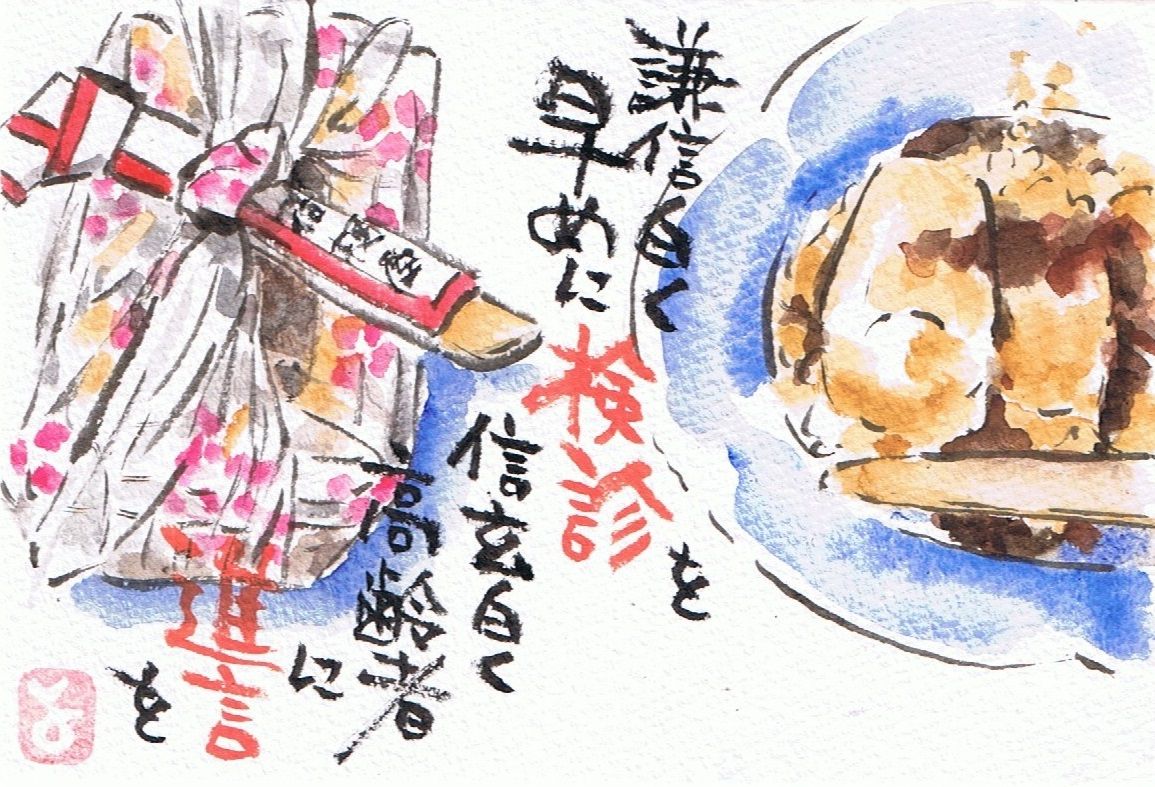 謙信曰く
早めに検診を
信玄曰く
高齢者に
進言を